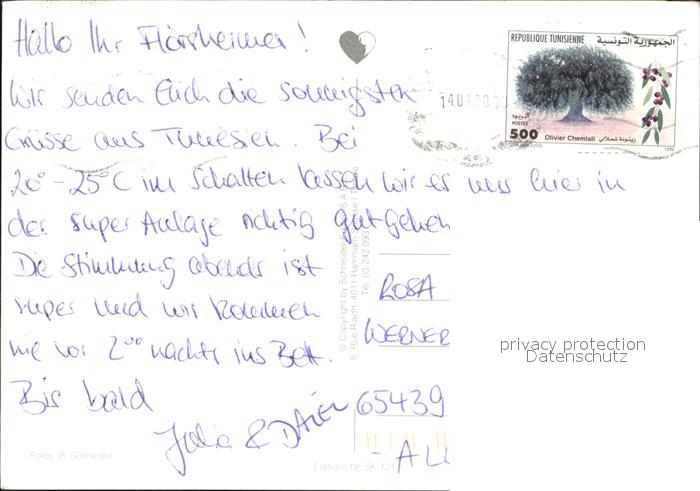 Hallo Ihr Flörsheimer!
Wir senden Euch die sonnigsten
Grüsse aus Tunesien. Bei
20° - 25°C im Schatten lassen wir es uns hier in
der super Anlage richtig gut gehen
Die Stimmung abends ist
super und wir kommen
nie vor 2⁰⁰ nachts ins Bett.
Bis bald
Julia &
REPUBLIQUE TUNISIENNE الجمهورية التونسية
البريد
POSTES
500
Olivier Chemlali زيتونة شملالي
© Copyright by Schneider
5, Rue Riadh, 4011 Hammam Sousse / Tunisie
Tél. 03-242.093
ROSA
WERNER
65439
- AL
privacy protection
Datenschutz
Fotos: B. Schneider
Editions Nr. SK 121